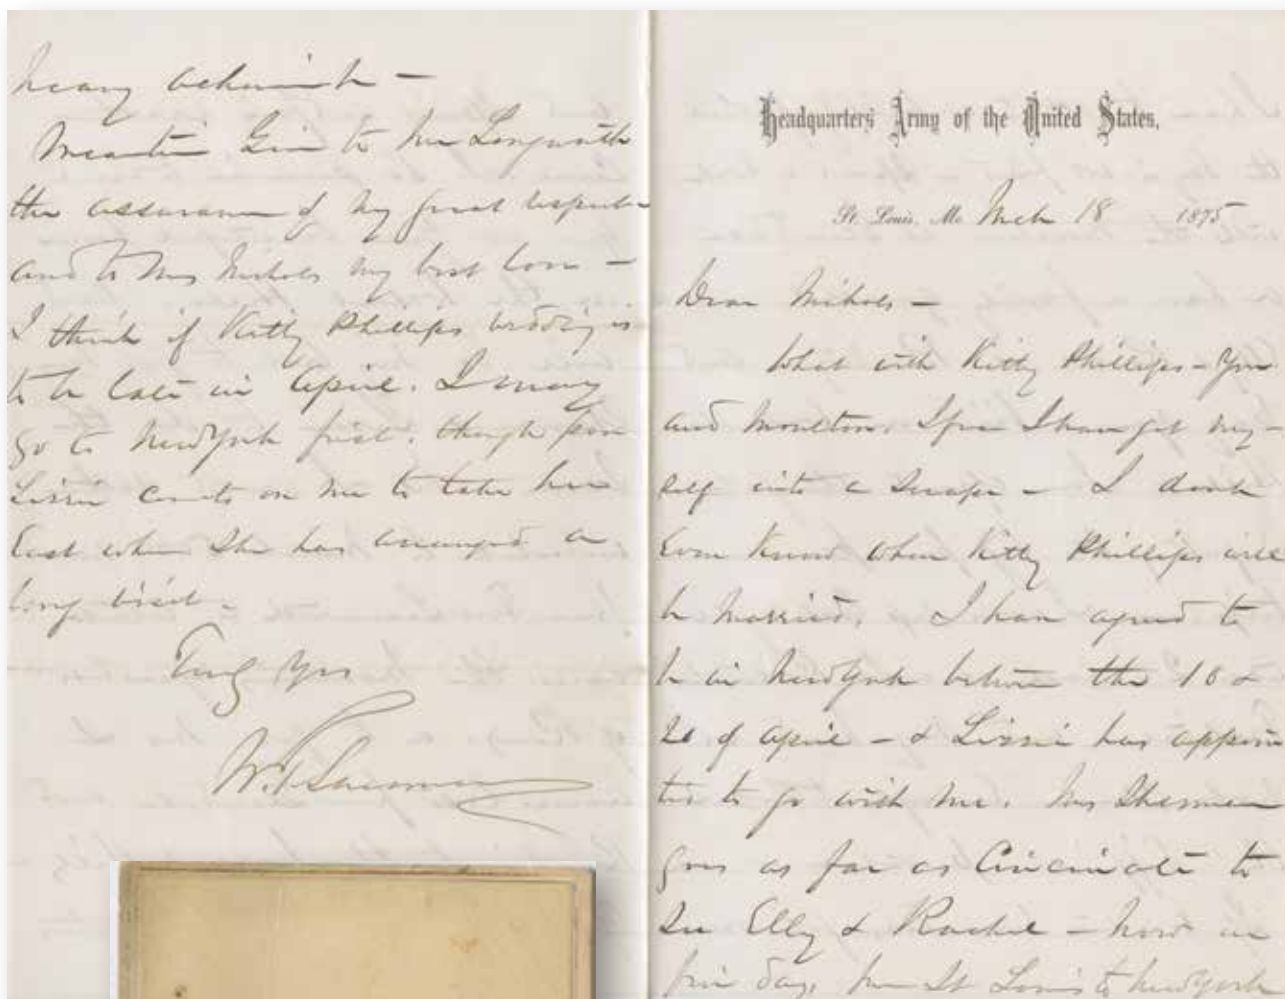 many
Meantime Give to Mr Longworth
the assurance of my great respect
and to Mrs Nichols my best love —
I think if Kitty Phillips wedding is
to be late in April. I may
go to New York first. though poor
Lizzie counts on me to take her
East where She has arranged a
long visit.
Truly Yrs
W. T. Sherman
Headquarters Army of the United States,
St. Louis, Mo. Mch 18 1875
Dear Nichols —
What with Kitty Phillips — You
and Moulton. I fear I have got my-
self into a Scrape — I dont
Even Know when Kitty Phillips will
be Married. I have agreed to
be in New York between the 10 &
20 of April — & Lizzie has appoin
ted to go with me. Mrs Sherman
goes as far as Cincinnati to
See Elly & Rachel — now in
days from St Louis to New York